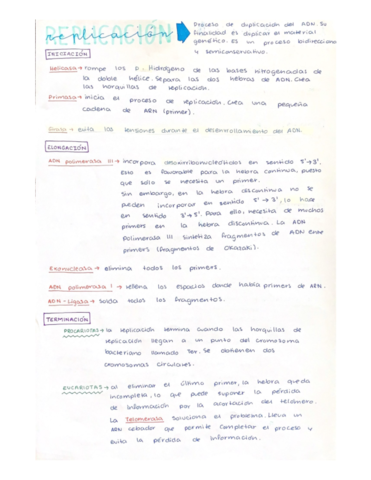 REPLICACIÓN
replicación
Proceso de duplicación del ADN. Su
finalidad es duplicar el material
genético. Es un proceso bidirecciona
y semiconservativo.
INICIACIÓN
Helicasa → rompe los p. hidrógeno de las bases nitrogenadas de
la doble hélice. Separa las dos hebras de ADN. Crea
las horquillas de replicación.
Primasa → inicia el proceso de replicación. Crea una pequeña
cadena de ARN (primer).
Girasa → evita las tensiones durante el desenrollamiento del ADN.
ELONGACIÓN
ADN polimerasa III → incorpora desoxirribonucleótidos en sentido 5'→3'.
Esto es favorable para la hebra continua, puesto
que solo se necesita un primer.
Sin embargo, en la hebra discontinua no se
pueden incorporar en sentido 5'→3', lo hace
en sentido 3'→5'. Para ello, necesita de muchos
primers en la hebra discontinua. La ADN
Polimerasa III sintetiza fragmentos de ADN entre
primers (fragmentos de OKAZAKI).
Exonucleasa → elimina todos los primers.
ADN polimerasa I → rellena los espacios donde había primers de ARN.
ADN-Ligasa → suelda todos los fragmentos.
TERMINACIÓN
PROCARIOTAS → la replicación termina cuando las horquillas de
replicación llegan a un punto del cromosoma
bacteriano llamado Ter. Se obtienen dos
cromosomas circulares.
EUCARIOTAS → al eliminar el último primer, la hebra queda
incompleta, lo que puede suponer la pérdida
de información por la acortación del telómero.
La Telomerasa soluciona el problema. Lleva un
ARN cebador que permite completar el proceso y
evita la pérdida de información.